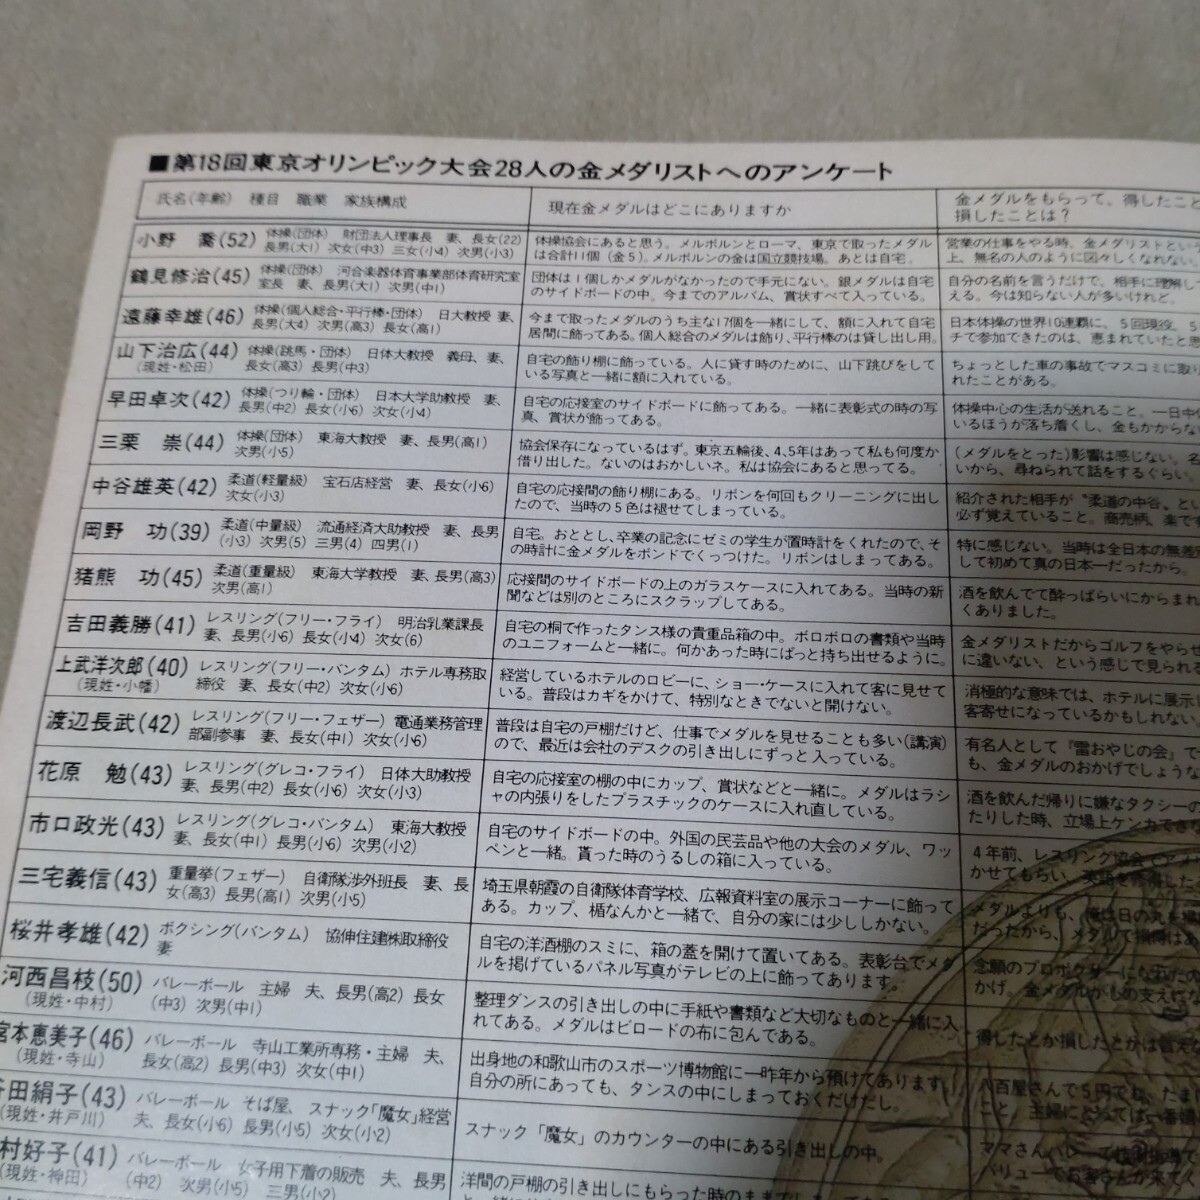 ■第18回東京オリンピック大会28人の金メダリストへのアンケート
氏名(年齢) 種目 職業 家族構成
現在金メダルはどこにありますか
金メダルをもらって。得したこと
損したことは？
小野 喬(52) 体操(団体) 財団法人理事長 妻、長女(22)
長男(大1) 次女(中3) 三女(小4) 次男(小3)
体操協会にあると思う。メルボルンとローマ、東京で取ったメダル
は合計11個(金5)。メルボルンの金は国立競技場。あとは自宅。
営業の仕事をやる時、金メダリストとい
上、無名の人のように図々しくなれない。
鶴見修治(45) 体操(団体) 河合楽器体育事業部体育研究室
室長 妻、長男(大1) 次男(中1)
団体は1個しかメダルがなかったので手元にない。銀メダルは自宅
のサイドボードの中。今までのアルバム、賞状すべて入っている。
自分の名前を言うだけで、相手に理解して
える。今は知らない人が多いけれど。
遠藤幸雄(46) 体操(個人総合・平行棒・団体) 日大教授 妻、
長男(大4) 次男(高3) 長女(高1)
今まで取ったメダルのうち主な17個を一緒にして、額に入れて自宅
居間に飾ってある。個人総合のメダルは飾り、平行棒のは貸し出し用。
日本体操の世界10連覇に、5回現役、5
チで参加できたのは、恵まれていたと思
山下治広(44) 体操(跳馬・団体) 日体大教授 義母、妻、
(現姓・松田) 長女(高3) 長男(中3)
自宅の飾り棚に飾っている。人に貸す時のために、山下跳びをして
いる写真と一緒に額に入れている。
ちょっとした車の事故でマスコミに取り
れたことがある。
早田卓次(42) 体操(つり輪・団体) 日本大学助教授 妻、
長男(中2) 長女(小6) 次女(小4)
自宅の応接室のサイドボードに飾ってある。一緒に表彰式の時の写
真、賞状が飾ってある。
体操中心の生活が送れること。一日中体
いるほうが落ち着くし、金もかからな
三栗 崇(44) 体操(団体) 東海大教授 妻、長男(高1)
次男(小5)
協会保存になっているはず。東京五輪後、4、5年はあって私も何度か
借り出した。ないのはおかしいネ。私は協会にあると思ってる。
(メダルをとった)影響は感じない。名
いから、尋ねられて話をするぐらい。
中谷雄英(42) 柔道(軽量級) 宝石店経営 妻、長女(小6)
次女(小3)
自宅の応接間の飾り棚にある。リボンを何回もクリーニングに出し
たので、当時の5色は褪せてしまっている。
紹介された相手が〝柔道の中谷〟とい
必ず覚えていること。商売柄、楽で
岡野 功(39) 柔道(中量級) 流通経済大助教授 妻、長男
(小3) 次男(5) 三男(4) 四男(1)
自宅。おととし、卒業の記念にゼミの学生が置時計をくれたので、そ
の時計に金メダルをボンドでくっつけた。リボンはしまってある。
特に感じない。当時は全日本の無差別
して初めて真の日本一だったから。
猪熊 功(45) 柔道(重量級) 東海大学教授 妻、長男(高3)
次男(高1)
応接間のサイドボードの上のガラスケースに入れてある。当時の新
聞などは別のところにスクラップしてある。
酒を飲んでて酔っぱらいにからまれ
くありました。
吉田義勝(41) レスリング(フリー・フライ) 明治乳業課長
妻、長男(小6) 長女(小4) 次女(6)
自宅の桐で作ったタンス様の貴重品箱の中。ボロボロの書類や当時
のユニフォームと一緒に。何かあった時にぱっと持ち出せるように。
金メダリストだからゴルフをやらせ
に違いない、という感じで見られる
上武洋次郎(40) レスリング(フリー・バンタム) ホテル専務取
(現姓・小幡) 締役 妻、長女(中2) 次女(小6)
経営しているホテルのロビーに、ショー・ケースに入れて客に見せて
いる。普段はカギをかけて、特別なときでないと開けない。
消極的な意味では、ホテルに展示し
客寄せになっているかもしれない
渡辺長武(42) レスリング(フリー・フェザー) 電通業務管理
部副参事 妻、長女(中1) 次女(小6)
普段は自宅の戸棚だけど、仕事でメダルを見せることも多い(講演)
ので、最近は会社のデスクの引き出しにずっと入っている。
有名人として『雷おやじの会』で
も、金メダルのおかげでしょうな
花原 勉(43) レスリング(グレコ・フライ) 日体大助教授
妻、長男(中2) 長女(小6) 次女(小3)
自宅の応接室の棚の中にカップ、賞状などと一緒に。メダルはラシ
ャの内張りをしたプラスチックのケースに入れ直している。
酒を飲んだ帰りに嫌なタクシーの
たりした時、立場上ケンカでき
市口政光(43) レスリング(グレコ・バンタム) 東海大教授
妻、長女(中1) 長男(小6) 次男(小2)
自宅のサイドボードの中。外国の民芸品や他の大会のメダル、ワッ
ペンと一緒。貰った時のうるしの箱に入っている。
4年前、レスリング協会でアメ
かせてもらい、英語を修得した
三宅義信(43) 重量挙(フェザー) 自衛隊渉外班長 妻、長
女(高3) 長男(高1) 次男(小5)
埼玉県朝霞の自衛隊体育学校、広報資料室の展示コーナーに飾って
ある。カップ、楯なんかと一緒で、自分の家には少ししかない。
メダルよりも、俺は日の丸を
だったから、メダルで損得は
桜井孝雄(42) ボクシング(バンタム) 協伸住建㈱取締役
妻
自宅の洋酒棚のスミに、箱の蓋を開けて置いてある。表彰台でメダ
ルを掲げているパネル写真がテレビの上に飾ってあります。
念願のプロボクサーになれたの
かげ。金メダルが心の支えに
河西昌枝(50) バレーボール 主婦 夫、長男(高2) 長女
(現姓・中村) (中3) 次男(中1)
整理ダンスの引き出しの中に手紙や書類など大切なものと一緒に入
れてある。メダルはビロードの布に包んである。
得したとか損したとかは言えな
宮本恵美子(46) バレーボール 寺山工業所専務・主婦 夫、
(現姓・寺山) 長女(高2) 長男(中3) 次女(中1)
出身地の和歌山市のスポーツ博物館に一昨年から預けてあります。
自分の所にあっても、タンスの中にしまっておくだけだし。
八百屋さんで5円でも、たま
こと。主婦にとっては一番
谷田絹子(43) バレーボール そば屋、スナック「魔女」経営
(現姓・井戸川) 夫、長女(小6) 長男(小5) 次女(小2)
スナック「魔女」のカウンターの中にある引き出しの中。
ママさんバレーで
バリューでお客さんが来て
村好子(41) バレーボール 女子用下着の販売 夫、長男
(現姓・神田) (中2) 次男(小5) 三男(小2)
洋間の戸棚の引き出しにもらった時のままで